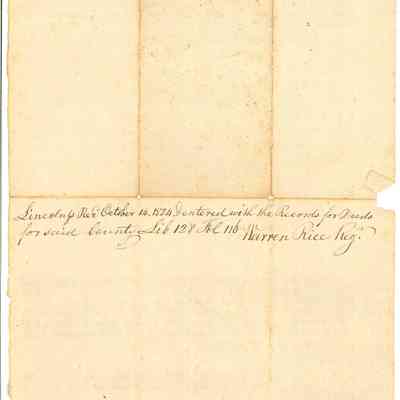 Lincoln ss Recd October 14. 1824 & entered with the Records for Deeds
for said County Lib 128 Fol 116 Warren Rice Regr.